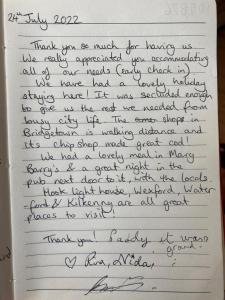 24th July 2022
Thank you so much for having us.
We really appreciated you accommodating
all of our needs (early check in)
We have had a lovely holiday
staying here! It was secluded enough
to give us the rest we needed from
busy city life. The shops in
Bridgetown is walking distance and
its chip shop made great cod!
We had a lovely meal in Mary
Barry's & a great night in the
pub next door to it, with the locals
Hook lighthouse, Wexford, Water
-ford & Kilkenny are all great
places to visit!
Thank you! Paddy it was
grand.